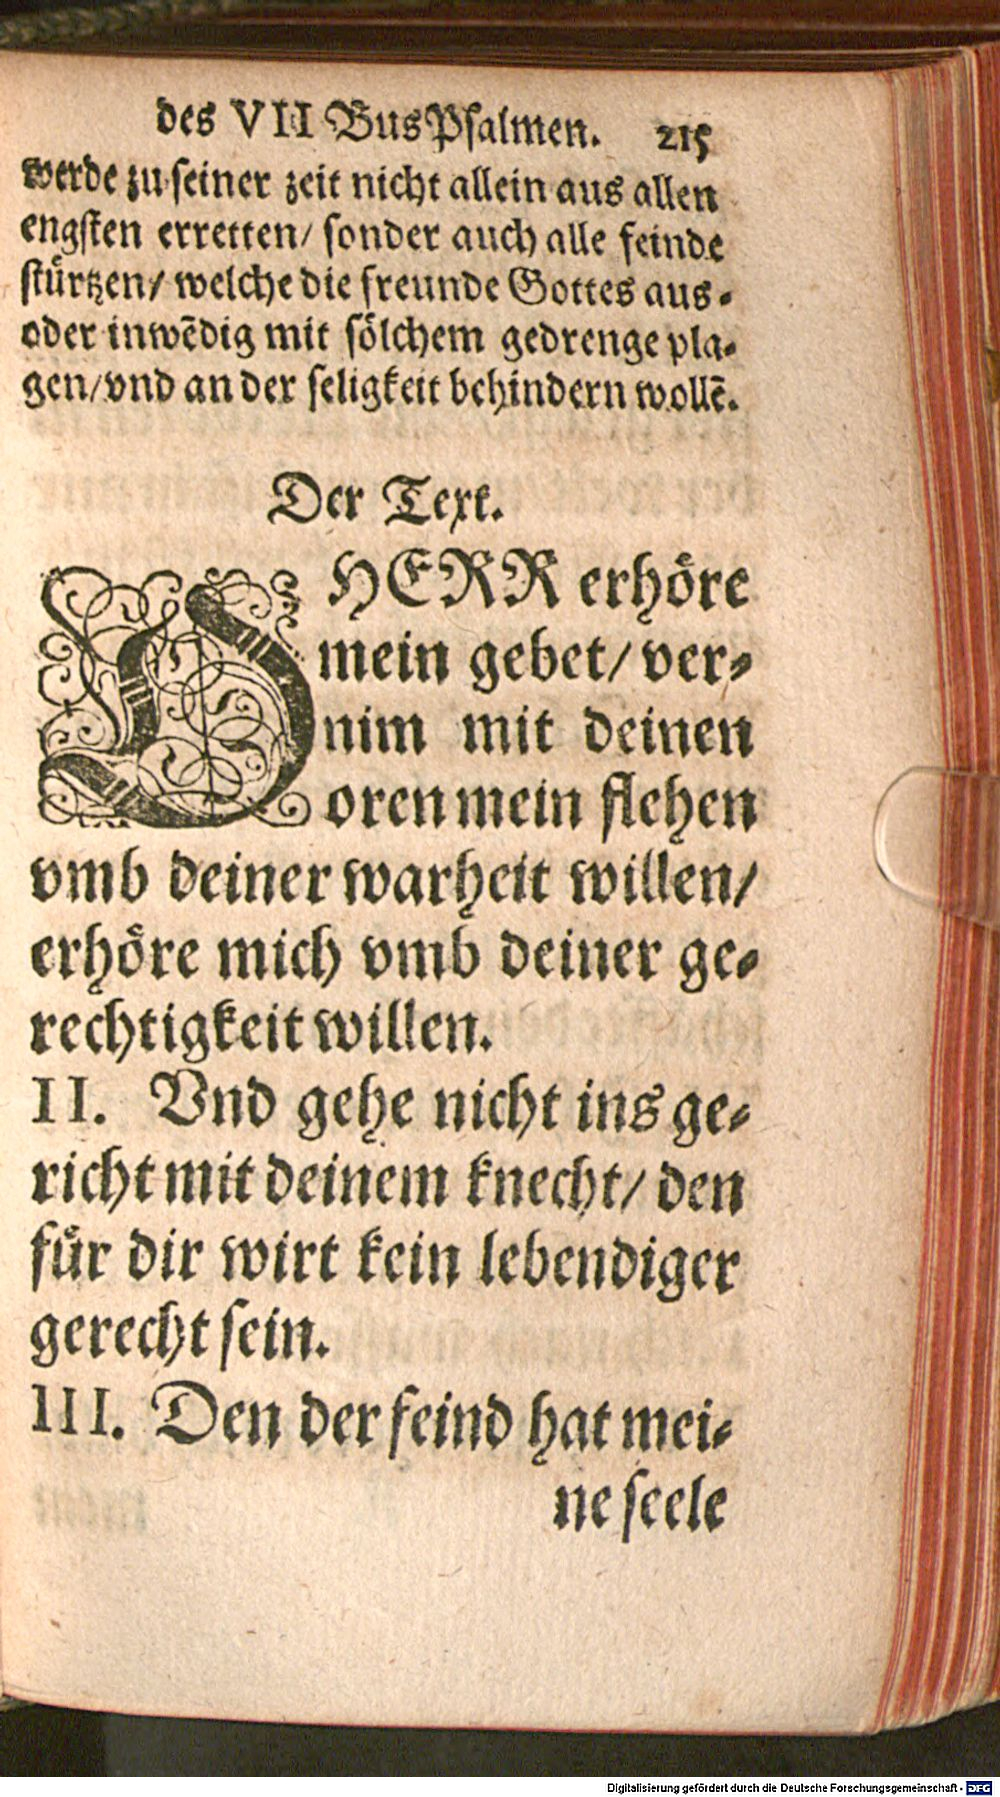 des VII BusPsalmen. 215
werde zu seiner zeit nicht allein aus allen
engsten erretten/ sonder auch alle feinde
stůrtzen/ welche die freunde Gottes aus-
oder inwẽdig mit sölchem gedrenge pla-
gen/vnd an der seligkeit behindern wollẽ.
Der Text.
HERR erhöre
mein gebet/ ver-
nim mit deinen
oren mein flehen
vmb deiner warheit willen/
erhöre mich vmb deiner ge-
rechtigkeit willen.
II. Vnd gehe nicht ins ge-
richt mit deinem knecht/ den
für dir wirt kein lebendiger
gerecht sein.
III. Den der feind hat mei-
ne seele
Digitalisierung gefördert durch die Deutsche Forschungsgemeinschaft - DFG